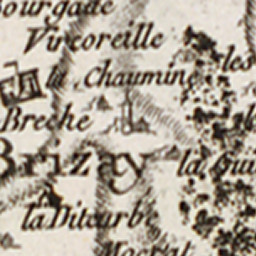 Bourgade
Vircoreille
les
la Chaumine
Breche
Brizay
la Gui
la Diteurbe